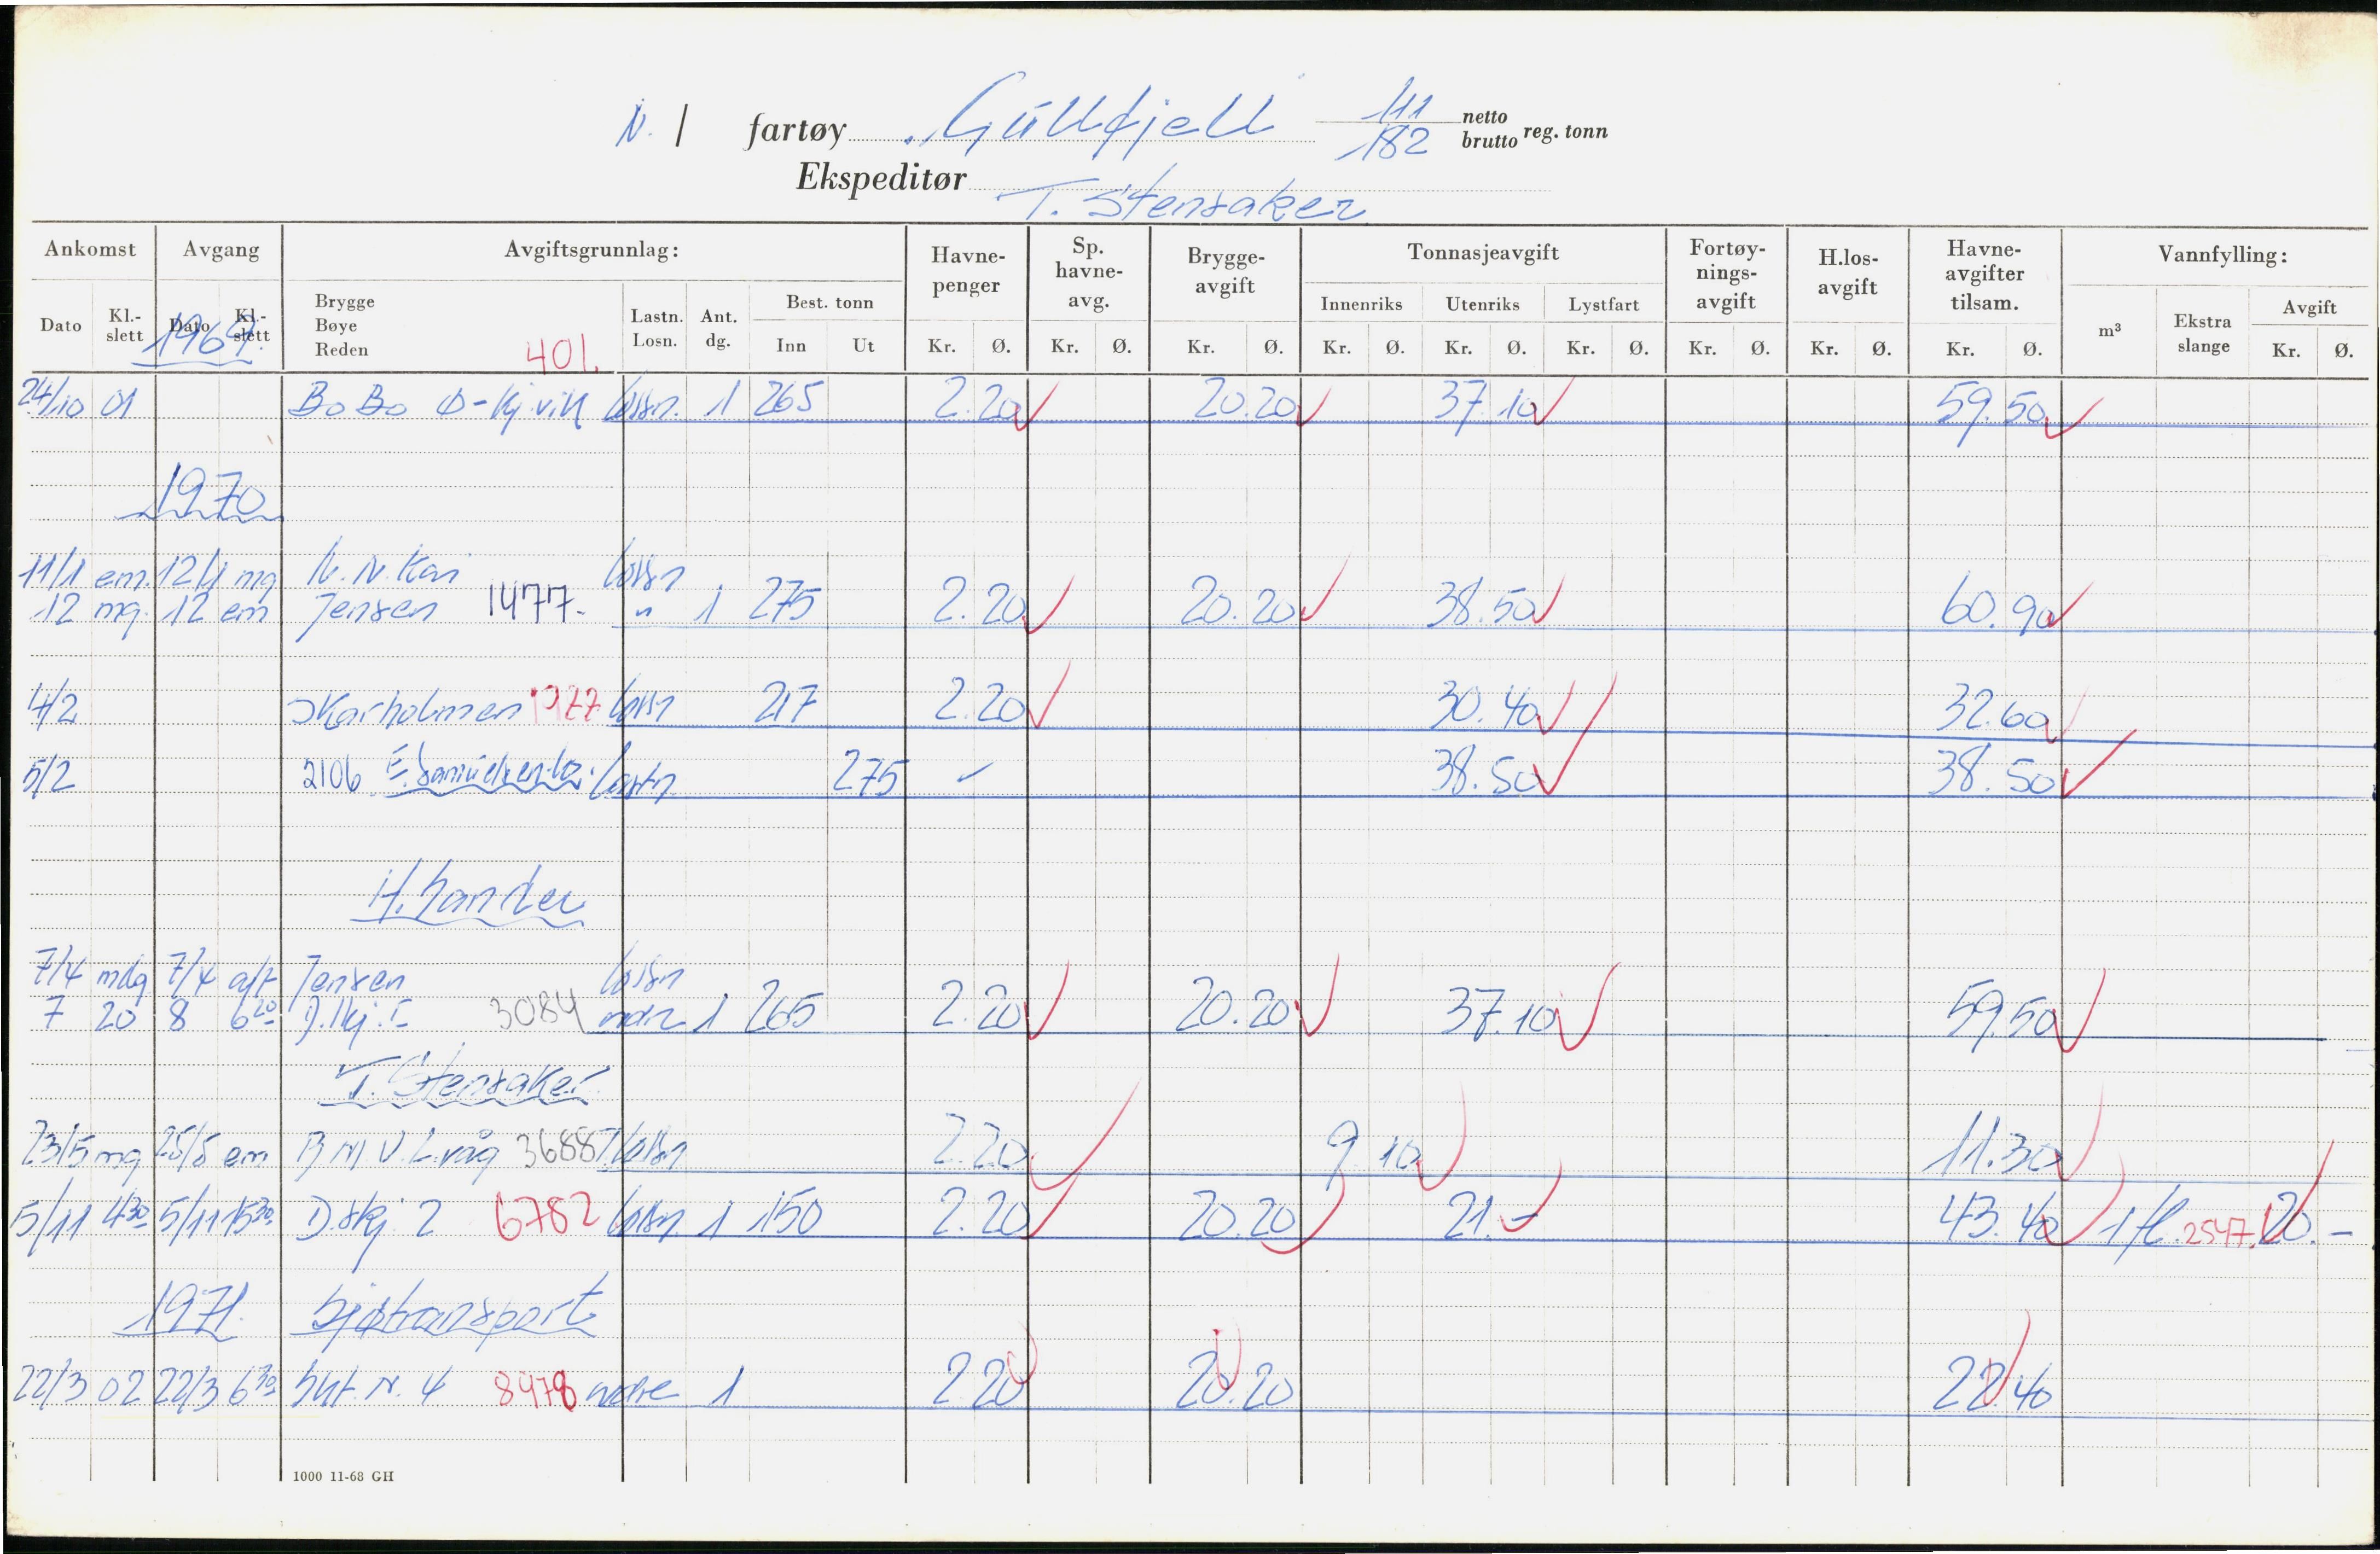 N. / fartøy „Gullfjell 111/182 netto brutto reg. tonn
Ekspeditør T. Stensaker
Ankomst Avgang Avgiftsgrunnlag: Havne-penger Sp. havne-avg. Brygge-avgift Tonnasjeavgift Fortøy-nings-avgift H.los-avgift Havne-avgifter tilsam. Vannfylling:
Dato Kl.-slett Dato Kl.-slett Brygge Bøye Reden Lastn. Losn. Ant. dg. Best. tonn Inn Ut Kr. Ø. Kr. Ø. Kr. Ø. Innenriks Kr. Ø. Utenriks Kr. Ø. Lystfart Kr. Ø. Kr. Ø. Kr. Ø. Kr. Ø. m³ Ekstra slange Avgift Kr. Ø.
1969. 401.
24/10 01 BoBo Ø-kj.vik lossn. 1 265 2.20 20.20 37.10 59.50
1970
11/1 em. 12/1 mg N.N. Kai lossn
12 mg. 12 em Jensen 1477- " 1 275 2.20 20.20 38.50 60.90
4/2 Skarholmen lossn 217 2.20 30.40 32.60
5/2 2106 lastn 275 - 38.50 38.50
7/4 mdg 7/4 aft Jensen lossn
7 20 8 6 20 D.skj. 3084 1 265 2.20 20.20 37.10 59.50
T. Stensaker
23/5 mg 25/5 em B M V L.våg 3688 lossn 2.20 9.10 11.30
5/11 4 30 5/11 15 30 D.skj. 2 6782 lossn. 1 150 2.20 20.20 21.- 43.40 1 fl. 2547. 20.-
1971. Sjøtransport
22/3 02 22/3 6 30 Skt. N. 4 8478 1 2.20 20.20 22.40
1000 11-68 GH